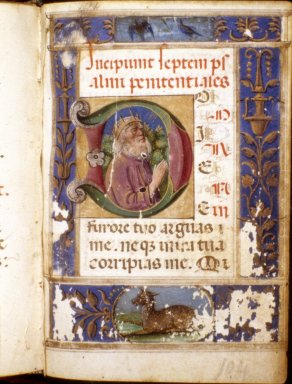 Incipiunt septem ps
almi penitentiales
D
O
M I
N E
N E
I N
furore tuo arguas
me. neq3 in ira tua
corripias me. Mi